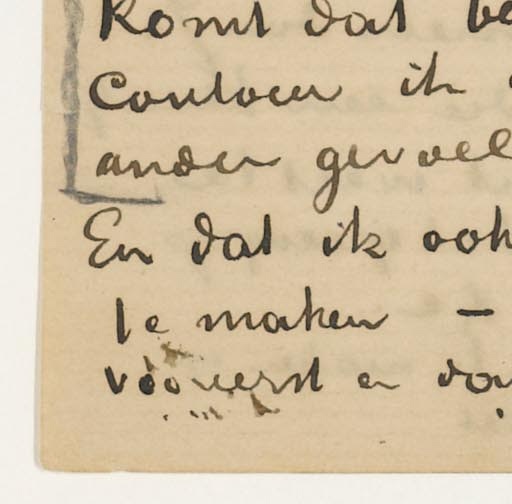 komt dat
Contour ik
ander gevoel
En dat ik ook
te maken —
vooreerst en